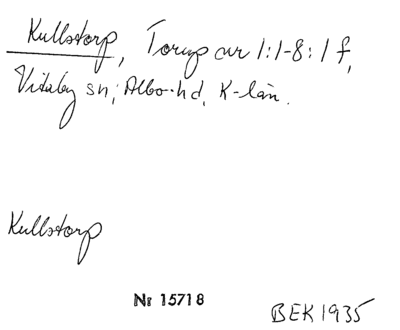 Kullstorp, Torup avr 1:1-8:1 f,
Vitaby sn, Albo hd, K-län.
Kullstorp
Nr 15718
BEK 1935